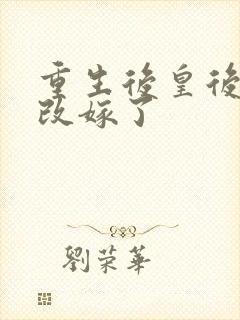 重生後皇後
改嫁了
劉荣華